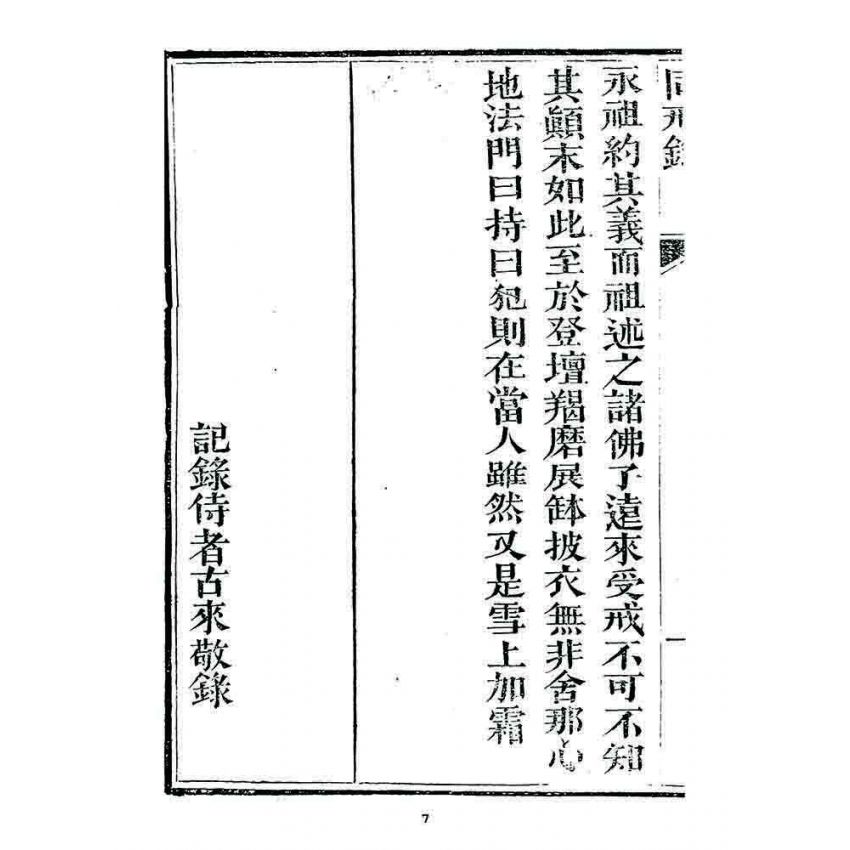 同戒錄
一
永祖約其義而祖述之諸佛子遠來受戒不可不知
其顛末如此至於登壇羯磨展缽披衣無非舍那心
地法門曰持曰犯則在當人雖然又是雪上加霜
記錄侍者古來敬錄
7